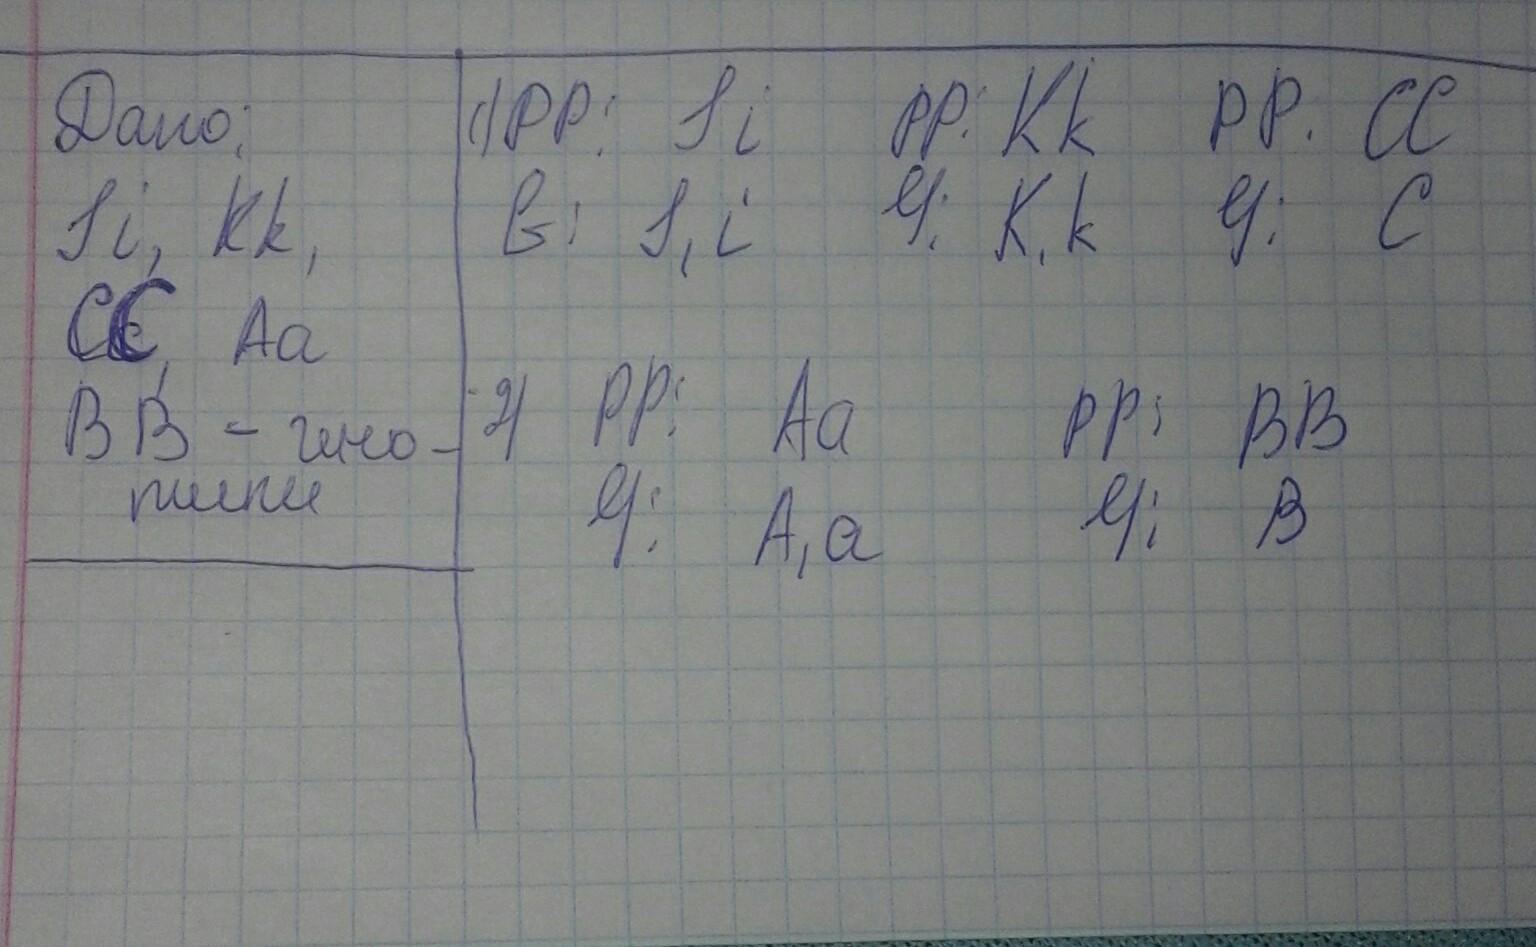 Дано:
Ii, Kk,
CC, Aa
BB - гено-
типи
1) PP: Ii PP: Kk PP: CC
G: I, i G: K, k G: C
2) PP: Aa PP: BB
G: A, a G: B